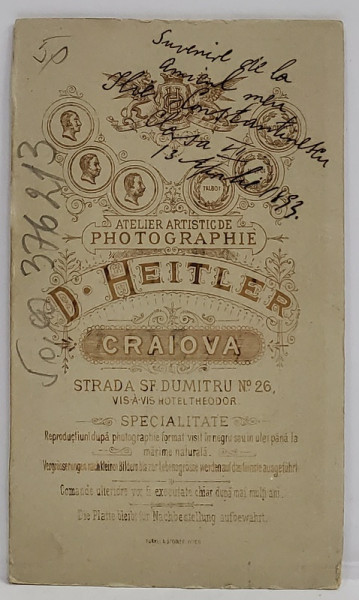 50
Suvenire de la
amicul meu
Constantinescu
Clasa VII
13 1893.
50.00 376213
TALBOT
ATELIER ARTISTIC DE
PHOTOGRAPHIE
D. HEITLER
CRAIOVA
STRADA SF. DUMITRU No 26,
VIS-À-VIS HOTEL THEODOR.
SPECIALITATE
Reproducțiuni după photographie format visit în negru sau în ulei până la
mărime naturală.
Vergrösserungen nach kleinen Bildern bis zur Lebensgrösse werden auf das feinste ausgeführt.
Comande ulterióre vor fi executate chiar după mai mulți ani.
Die Platte bleibt für Nachbestellung aufbewahrt.